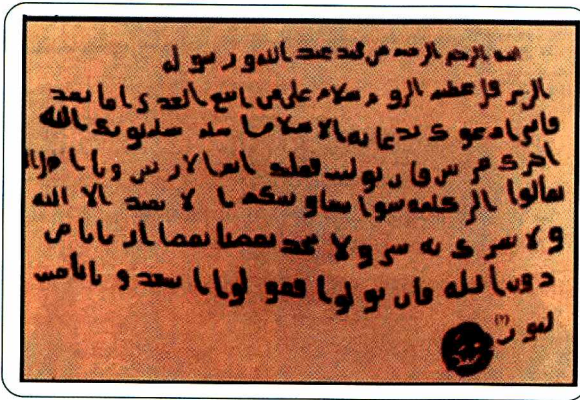 الله الرحمن الرحيم من محمد عبد الله و رسوله
الى هرقل عظيم الروم سلام على من اتبع الهدى اما بعد
فانى ادعوك بدعاية الاسلام اسلم تسلم يوتك الله
اجرك مرتين فان توليت فعليك اثم الاريسين ويا اهل
تعالوا الى كلمة سوا بيننا وبينكم ا لا نعبد الا الله
ولا نشرك به ولا يتخذ بعضنا بعضا اربابا من
دون الله فان تولوا فقولوا اشهدوا بانا مس
لمون (٢)